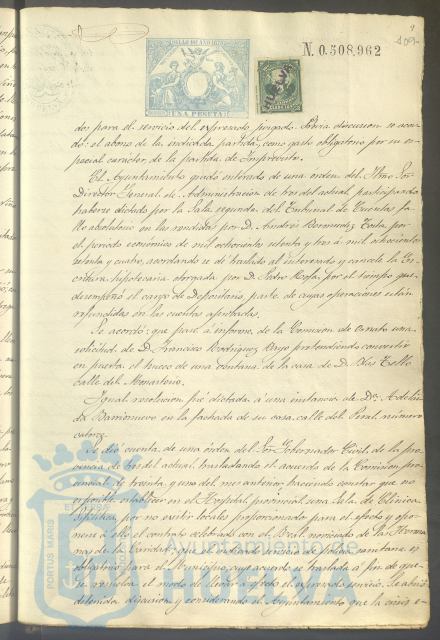 SELLO DE AÑO 1879
UNA PESETA
N. 0.508,962
409
dos para el servicio del expresado juzgado. Prévia discusion se acor-
dó: el abono de la indicada partida, como gasto obligatorio por su es-
pecial caracter de la partida de Imprevistos.
El Ayuntamiento quedó enterado de una orden del Iltmo Sor
Director General de Administracion de tres del actual, participando
haberse dictado por la Sala segunda del Tribunal de Cuentas fa-
llo absolutorio en las rendidas por D. Andrés Bermudez por
el periodo económico de mil ochocientos setenta y tres á mil ochocientos
setenta y cuatro, acordando se dé traslado al interesado y cancele la Es-
critura hipotecaria otorgada por D. Pedro por el tiempo que
desempeñó el cargo de Depositario parte de cuyas operaciones están
refundidas en las cuentas aprobadas.
Se acordó: que pase á informe de la Comision de Ornato una
solicitud de D. Francisco Rodriguez Rayo pretendiendo convertir
en puerta el hueco de una ventana de la casa de D. Tello
calle del Monasterio.
Igual resolucion fué dictada á una instancia de Da Adelai-
da Barrionuevo en la fachada de su casa, calle del Peral, número
catorce.
Se dió cuenta de una órden del Sor Gobernador Civil de la pro-
vincia de tres del actual, trasladando el acuerdo de la Comision pro-
vincial de treinta y uno del mes anterior haciendo constar que no
es posible establecer en el Hospital provincial una Sala de Clínica
por no existir locales proporcionados para el efecto y opo-
nerse á ello el contrato celebrado con el Real noviciado de las Herma-
nas de la Caridad; que el indicado servicio de policía sanitaria es
obligatorio para el Municipio, cuyo acuerdo se traslada á fin de que
se resuelva el modo de llevar á efecto el espresado servicio. Se abrió
detenida discusion y considerando el Ayuntamiento que la crisis e-
Ayuntamiento de
HUELVA
PORTUS MARIS